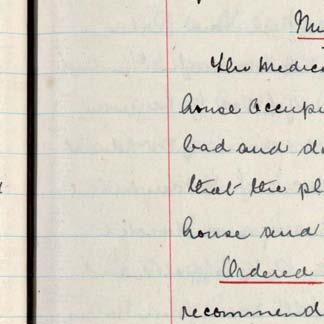 The Medic
house occupi
bad and d
that the pl
house send
Ordered
recommend